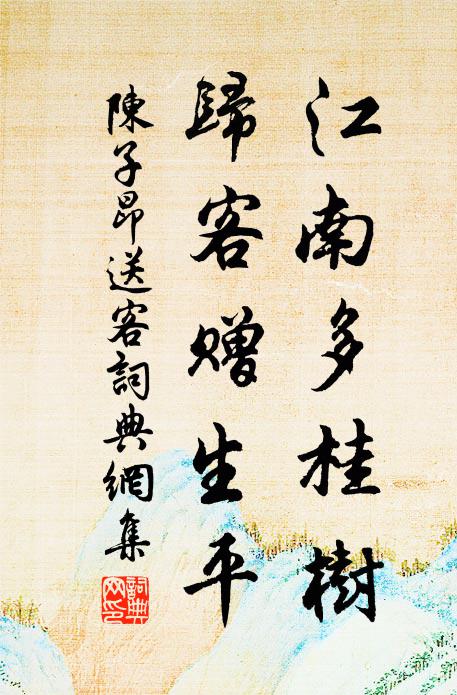 江南多桂樹
歸客贈生平
陳子昂送客詞典網集
詞典網印